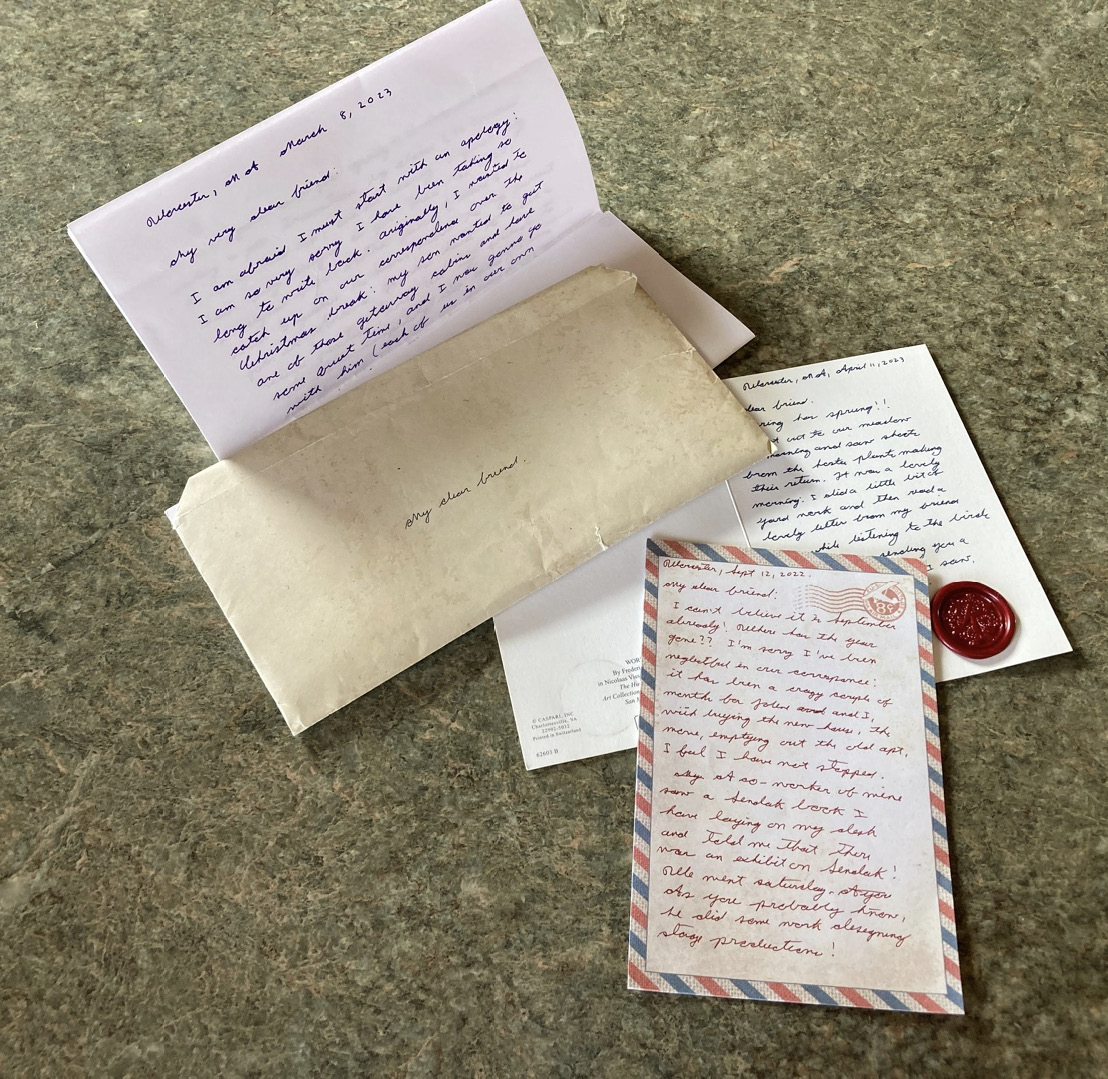 Worcester, MA March 8, 2023
My very dear friend:
I am afraid I must start with an apology:
I am so very sorry I have been taking so
long to write back. Originally, I wanted to
catch up on our correspondence over the
Christmas break: my son wanted to get
one of those getaway cabins and have
some quiet time, and I was gonna go
with him (each of us in our own
My dear friend.
Worcester, MA, April 11, 2023
dear friend.
ring has sprung!!
t out to our meadow
morning and saw shoots
from the hosta plants making
their return. It was a lovely
morning. I did a little bit of
yard work and then read a
lovely letter from my friend
while listening to the birds
sending you a
I saw.
WOR
By Freder
in Nicolaas
The H
Art Collection
San
© CASPARI, INC
Charlottesville, VA
22902-0032
Printed in Switzerland
62603 B
Worcester, Sept 12, 2022.
My dear friend:
I can't believe it is September
already! Where has the year
gone?? I'm sorry I've been
neglectful in our correspance:
it has been a crazy couple of
months for Jolene and I,
with buying the new house, the
move, emptying out the old apt,
I feel I have not stopped.
A co-worker of mine
saw a Sendak book I
have laying on my desk
and told me that there
was an exhibit on Sendak!
We went Saturday.
As you probably know,
he did some work designing
stage productions!
8¢